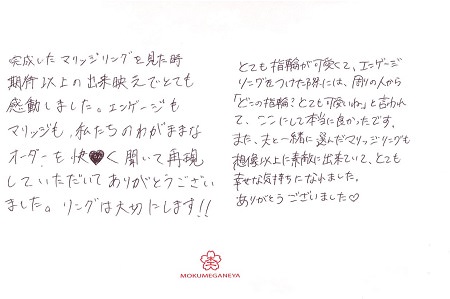 完成したマリッジリングを見た時
期待以上の出来映えでとても
感動しました。エンゲージも
マリッジも、私たちのわがままな
オーダーを快♥く聞いて再現
していただいてありがとうござい
ました。リングは大切にします!!
とても指輪が可愛くて、エンゲージ
リングをつけた際には、周りの人から
「どこの指輪?とても可愛いね」と言われ
て、ここにして本当に良かったです。
また、夫と一緒に選んだマリッジリングも
想像以上に素敵に出来ていて、とても
幸せな気持ちになれました。
ありがとうございました♡
MOKUMEGANEYA